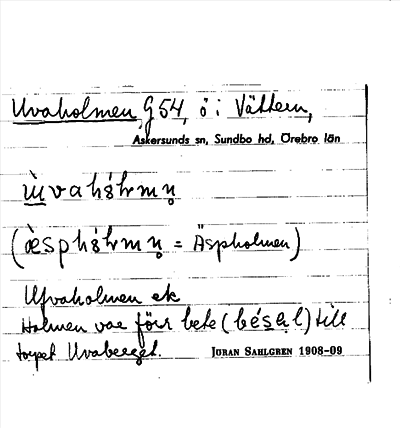 Uvaholmen, G54, ö i Vättern,
Askersunds sn, Sundbo hd, Örebro län
ùvahɷ́lmn̥
(æ̀sphɷ́lmn̥ = Äspholmen)
Ufvaholmen ek
Holmen var förr bete (bésəl) till
torpet Uvaberget.
JÖRAN SAHLGREN 1908-09